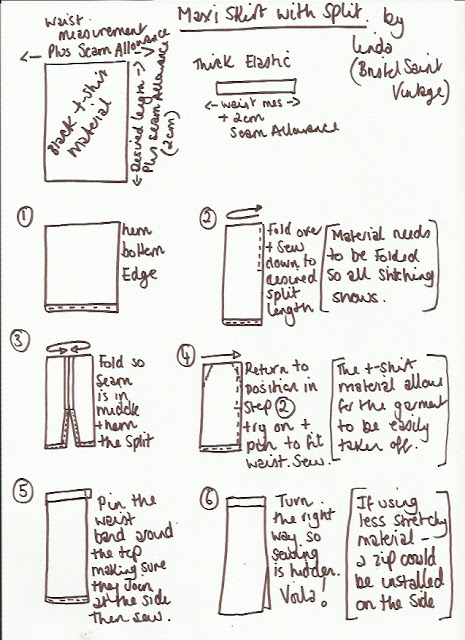 Maxi Skirt with Split. by
Linda
(Bristol Saint
Vintage)
Waist
measurement
Plus Seam Allowance
Black t-shirt
material
Desired length
Plus Seam Allowance
(2cm)
Thick Elastic
waist mes
+ 2cm
Seam Allowance
①
hem
bottom
Edge
②
Fold over
+ Sew
down to
desired
split
length
Material needs
to be Folded
so all Stitching
shows.
③
Fold so
Seam
is in
middle
+ hem
the Split
④
Return to
position in
Step ②
try on +
pin to fit
waist. Sew.
The t-shirt
material allows
for the garment
to be easily
taken off.
⑤
Pin the
waist
band around
the top
making sure
they join
at the side
then sew.
⑥
Turn
the right
way so
seaming
is hidden.
Voila!
If using
less stretchy
material -
a zip could
be installed
on the side